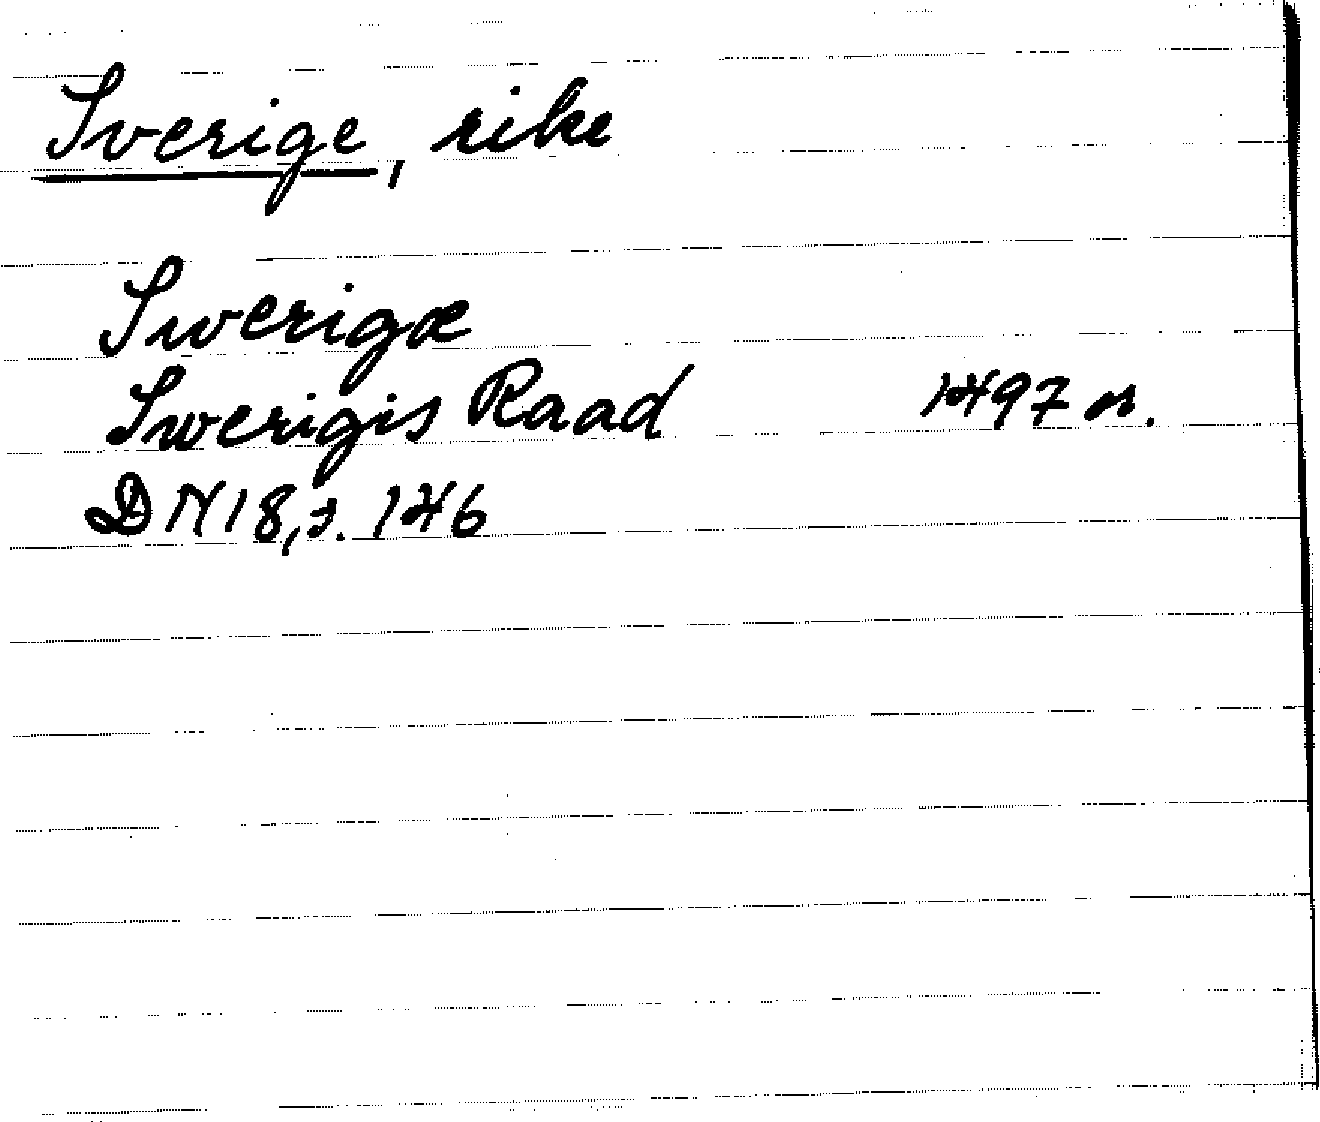 Sverige, rike
Swerigæ
Swerigis Raad 1497 or.
DN 18, s. 146